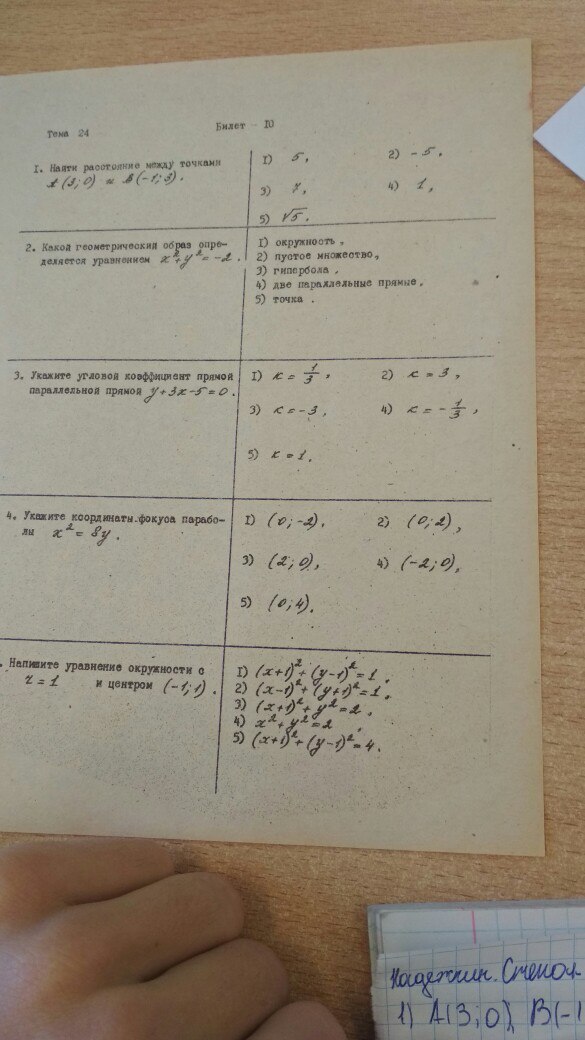 Тема 24
Билет - 10
1. Найти расстояние между точками
A(3;0) и B(-1;3).
1) 5,
2) -5,
3) 7,
4) 1,
5) √5.
2. Какой геометрический образ опре-
деляется уравнением x²+y²=-2.
1) окружность,
2) пустое множество,
3) гипербола,
4) две параллельные прямые,
5) точка.
3. Укажите угловой коэффициент прямой
параллельной прямой y+3x-5=0.
1) к = 1/3,
2) к = 3,
3) к = -3,
4) к = -1/3,
5) к = 1.
4. Укажите координаты фокуса парабо-
лы x² = 8y.
1) (0;-2),
2) (0;2),
3) (2;0),
4) (-2;0),
5) (0;4).
. Напишите уравнение окружности с
r = 1 и центром (-1;1).
1) (x+1)²+(y-1)²=1,
2) (x-1)²+(y+1)²=1,
3) (x+1)²+y²=2,
4) x²+y²=2,
5) (x+1)²+(y-1)²=4.
1) A(3;0), B(-1